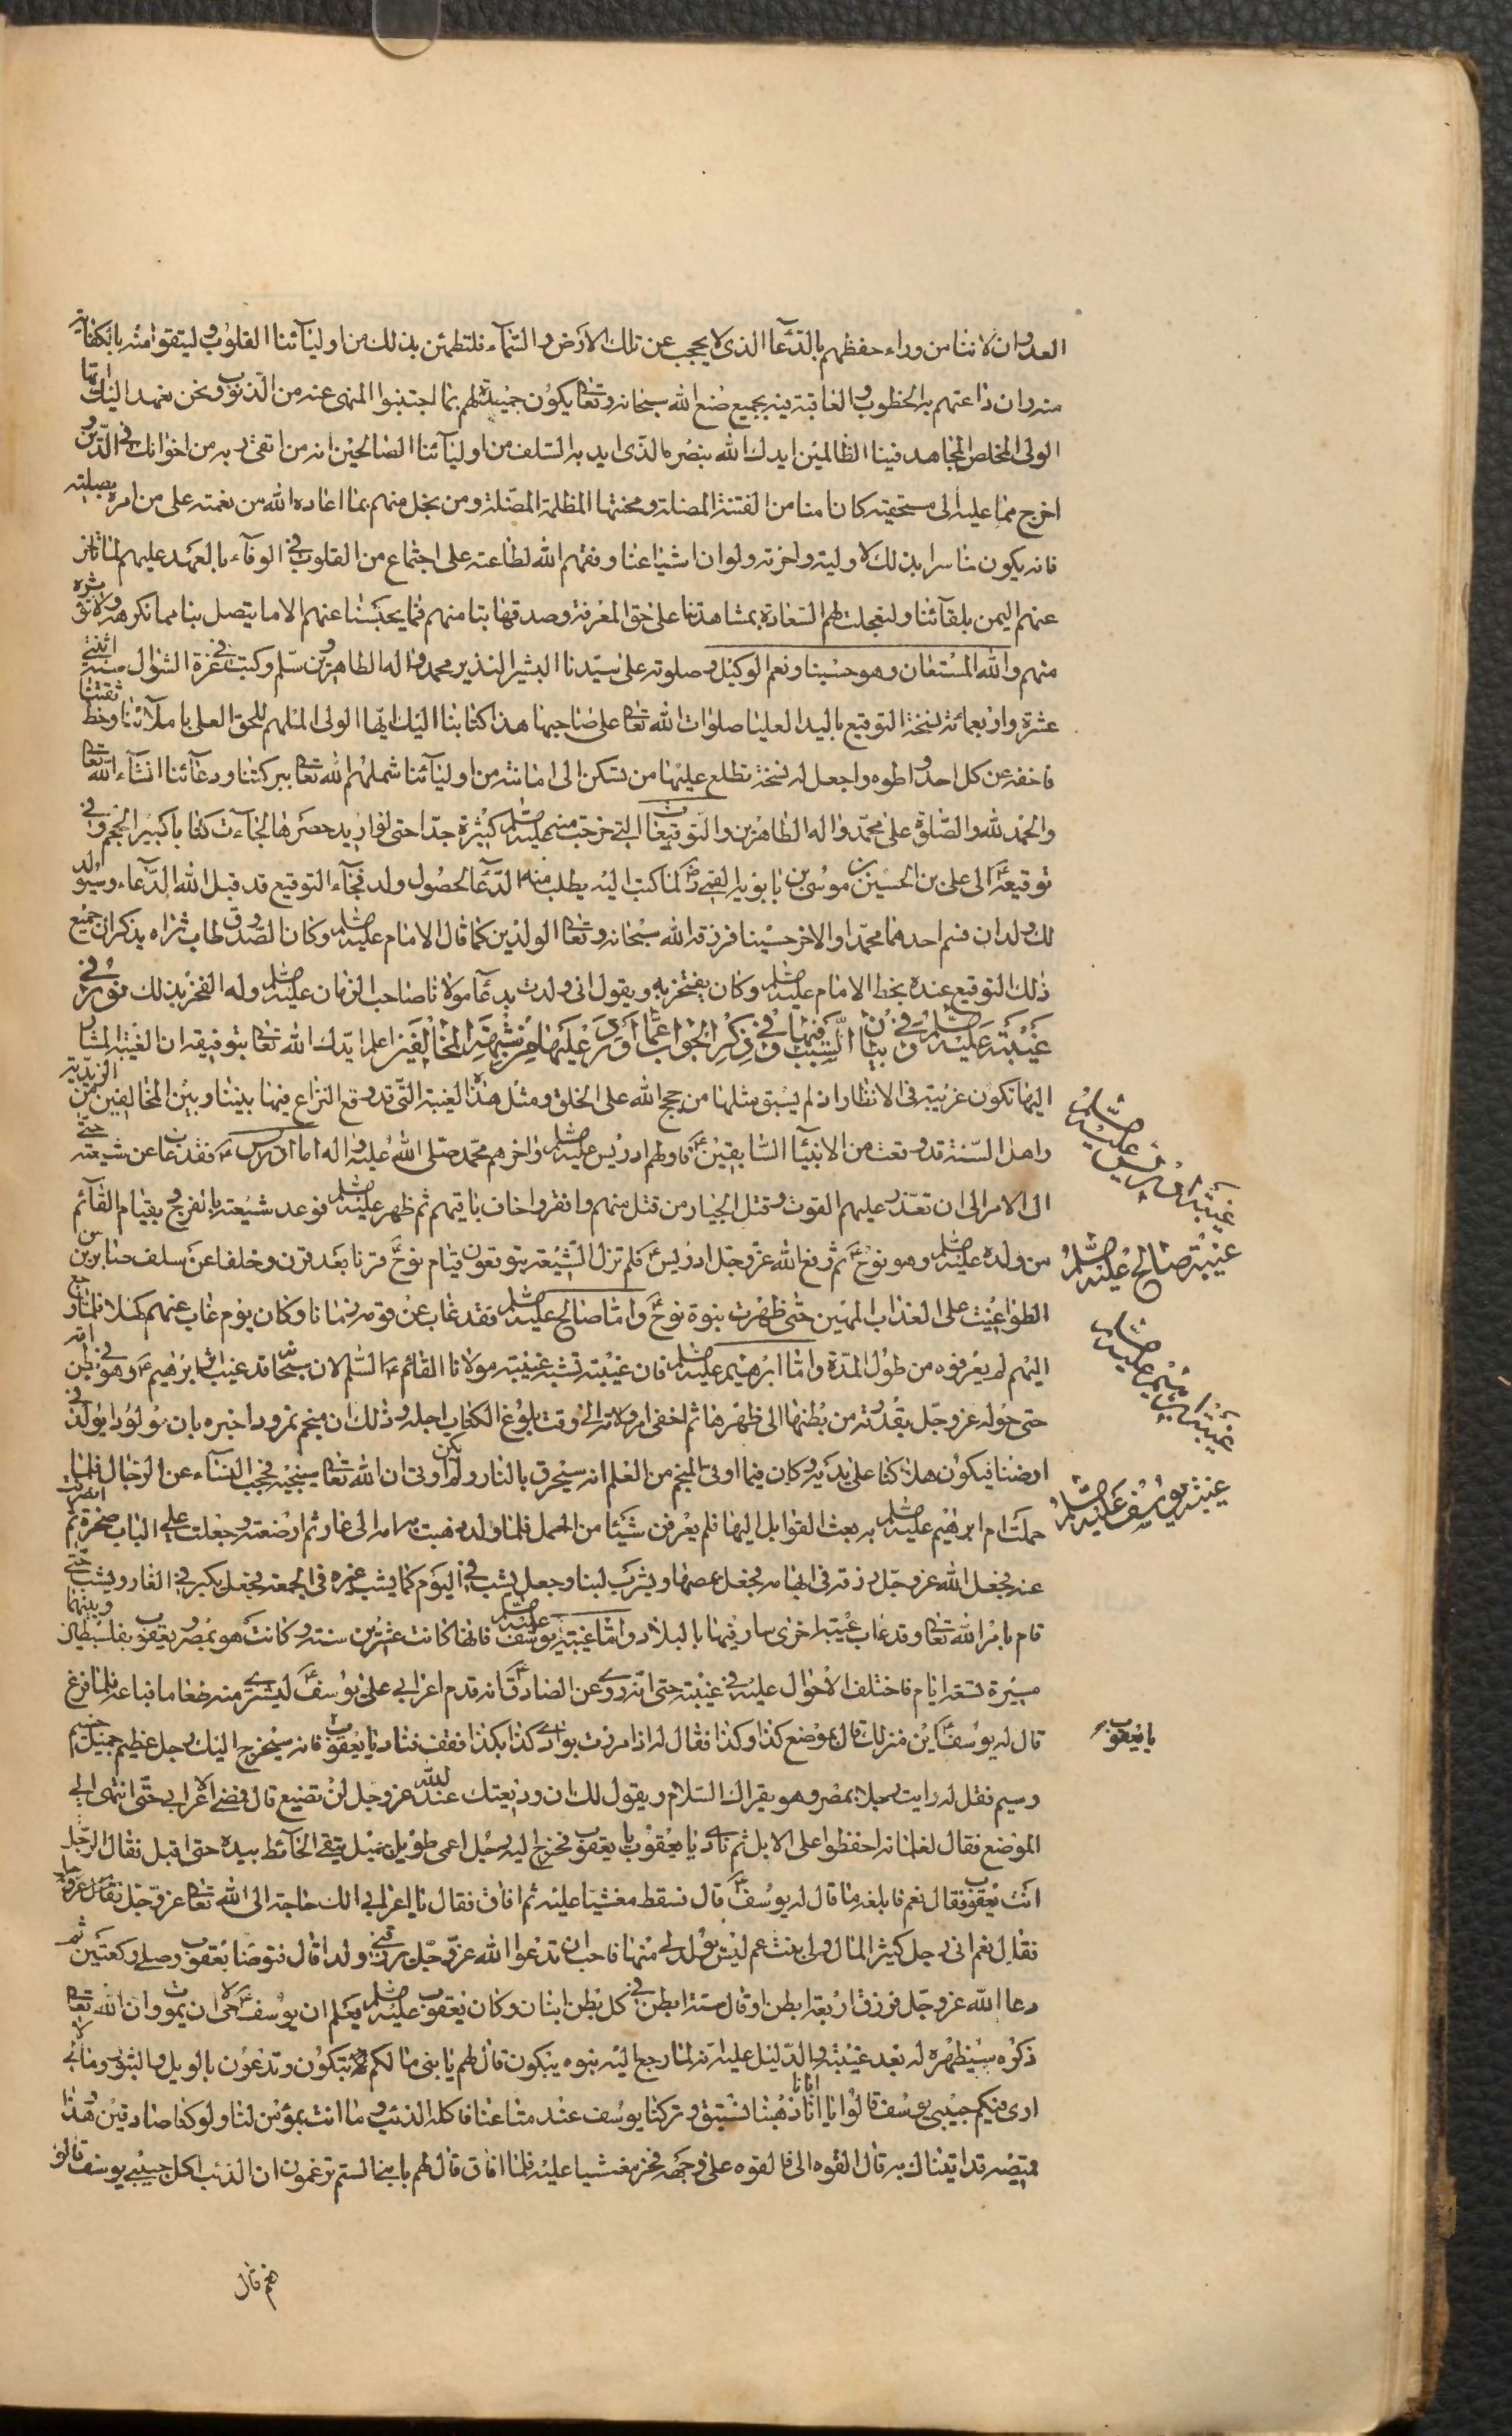 العدوان لاننا من وراء حفظهم بالدّعآء الذى لا يحجب عن ملك الارض والسّمآء فلتطمئن بذلك من اوليآئنا القلوب وليتقوا منه بالكفاية
منه وان راعتهم بهم الخطوب والعاقبة فيه بجميع صنع الله سبحانه وتعا يكون حميدة لهم بما اجتنبوا المنهى عنه من الذنوب ونحن نعهد اليك ايها
الولى المخلص المجاهد فينا الظالمين ايدك الله بنصره الذى ايد به السلف من اوليآئنا الصالحين انه من اتقى ربه من اخوانك فى الدّين و
اخرج مما عليه الى مستحقيه كان امنا من الفتنة المضلة ومحنتها المظلمة المضلة ومن بخل منهم بما اعاده الله من نعمته على من امره بصلته
فانه يكون خاسرا بذلك لاوليه واخرته ولو ان اشياعنا وفقهم الله لطاعته على اجتماع من القلوب فى الوفآء بالعهد عليهم لما تاخر
عنهم اليمن بلقآئنا ولتعجلت لهم السّعادة بمشاهدتنا على حق المعرفة وصدقها بنا منهم فما يحبسنا عنهم الا ما يتصل بنا مما نكرهه ولا نؤثره
منهم والله المستعان وهو حسبنا ونعم الوكيل وصلوته على سيّدنا البشير النذير محمد واله الطاهرين وسلم وكتب فى غرة الشوال من سنة اثنتى
عشرة واربعمائة نسخة التوقيع باليد العليا صلوات الله تعا على صاحبها هذا كتابنا اليك ايّها الولى الملهم للحق العلى باملآئنا وخط ثقتنا
فاخفه عن كل احد واطوه واجعل له نسخة تطلع عليها من تسكن الى امانته من اوليآئنا شملهم الله تعا ببركتنا ودعآئنا انشآء الله تعا
والحمد لله والصّلوة على محمّد واله الطاهرين والتوقيعات التى خرجت منه عليه السلم كثيرة جدّا حتى لو اريد حصرها لجآءت كتابا كبير الحجم وفى
توقيعه ع الى على بن الحسين بن موسى بن بابويه القمى لما كتب اليه يطلب منه الدّعآء لحصول ولد فجآء التوقيع قد قبل الله الدّعآء وسيولد
لك ولدان فسم احدهما محمّدا والاخر حسينا فرزقه الله سبحانه وتعا الولدين كما قال الامام عليه السلم وكان الصّدوق طاب ثراه يذكر ان جميع
ذلك التوقيع عنده بخط الامام عليه السلم وكان يفتخر به ويقول انى ولدت بدعآء مولانا صاحب الزمان عليه السلم وله الفخر بذلك نور فى
غيبته عليه السلم وبيان السّبب فيها وفى ذكر الجواب عمّا اورد عليها من شبهة المخالفين اعلم ايدك الله تعا بتوفيقه ان الغيبة المشار
اليها تكون غريبة فى الانظار ان لم يسبق مثلها من حجج الله على الخلق ومثل هذه الغيبة التى قد وقع النزاع فيها بيننا وبين المخالفين من الزيدية
واهل السّنة قد وقعت من الانبيآء السّابقين ع فاولهم ادريس عليه السلم واخرهم محمّد صلى الله عليه واله اما ادريس ع فقد غاب عن شيعته حتى
ال الامر الى ان تعذّر عليهم القوت وقتل الجبار من قتل منهم وافقر واخاف باقيهم ثم ظهر عليه السلم فوعد شيعته بالفرج وبقيام القآئم
من ولده عليه السلم وهو نوح ع ثم رفع الله عزّ وجلّ ادريس ع فلم تزل الشّيعة يتوقعون قيام نوح ع قرنا بعد قرن وخلفا عن سلف صابرين من
الطواغيت على العذاب المهين حتى ظهرت نبوة نوح ع واما صالح عليه السلم فقد غاب عن قومه زمانا وكان يوم غاب عنهم كهلا فلما رجع
اليهم لم يعرفوه من طول المدّة واما ابرهيم عليه السلم فان غيبته تشبه غيبة مولانا القائم ع السّلم لان سبحانه قد غيب اثر ابرهيم ع وهو فى بطن امّه
حتى حوله عز وجلّ بقدرته من بطنها الى ظهرها ثم اخفى امر ولادته الى وقت بلوغ الكتاب اجله وذلك ان منجم نمرود اخبره بان مولودا يولد فى
ارضنا فيكون هلاكنا على يديه وكان فيما اوتى المنجم من العلم انه سيحرق بالنار ولم يكن اوتى ان الله تعا سينجيه فحجب النسآء عن الرجال فلما
حملت ام ابرهيم عليه السلم به بعث القوابل اليها فلم يعرفن شيئا من الحمل فلما ولد ذهبت به امه الى غار ثم ارضعته وجعلت على الباب صخرة ثم انصرفت
عنه فجعل الله عز وجل رزقه فى ابهامه فجعل يمصها ويشرب لبنا وجعل يشب فى اليوم كما يشب غيره فى الجمعة فجعل يكبر فى الغار ويشب حتى
قام بامر الله تعا وقد غاب غيبة اخرى سار فيها بالبلاد واما غيبة يوسف عليه السلم فانها كانت عشرين سنة وكانت هو بمصر ويعقوب بفلسطين وبينهما
مسيرة تسعة ايام فاختلف الاحوال عليه فى غيبته حتى انه روى عن الصادق ع انه قدم اعرابى على يوسف ع ليشترى منه طعاما فباعه فلما فرغ
قال له يوسف ع اين منزلك قال بموضع كذا وكذا فقال له اذا مررت بوادى كذا بكذا فقف فناد يا يعقوب يا يعقوب فانه سيخرج اليك رجل عظيم جميل جسيم
وسيم فقل له رايت رجلا بمصر وهو يقراك السّلام ويقول لك ان وديعتك عند الله عز وجل لن تضيع قال فمضى الاعرابى حتّى انتهى الى
الموضع فقال لغلمانه احفظوا على الابل ثم نادى يا يعقوب يا يعقوب فخرج اليه رجل اعمى طويل جميل يتقى الحآئط بيده حتى اقبل فقال الرجل
انت يعقوب فقال نعم فابلغه ما قال له يوسف ع قال فسقط مغشيا عليه ثم افاق فقال يا اعرابى الك حاجة الى الله تعا عزّ وجل
فقال نعم انى رجل كثير المال ولى بنت عم ليس يولد لى منها فاحب ان تدعوا الله عزّ وجلّ يرزقنى ولدا قال فتوضا يعقوب وصلى ركعتين ثم
دعا الله عز وجلّ فرزق اربعة ابطن او قال ستة ابطن فى كل بطن ابنان وكان يعقوب عليه السلم يعلم ان يوسف ع حى لا يموت وان الله تعا
ذكره سيظهره له بعد غيبته والدّليل عليه انه لما رجع اليه بنوه يبكون قال لهم يا بنى ما لكم تبكون وتدعون بالويل والثبور وما لى لا
ارى فيكم حبيبى يوسف قالوا يا ابانا انا ذهبنا نستبق وتركنا يوسف عند متاعنا فاكله الذئب وما انت بمؤمن لنا ولو كنا صادقين وهذا
قميصه قد اتيناك به قال القوه الى فالقوه على وجهه فخر مغشيا عليه فلما افاق قال لهم يا بنى الستم تزعمون ان الذئب اكل حبيبى يوسف قالوا
نعم قال
غيبة ادريس عليه السلم
غيبة صالح عليه السلم
غيبة ابرهيم عليه السلم
غيبة يوسف عليه السلم
يا يعقوب